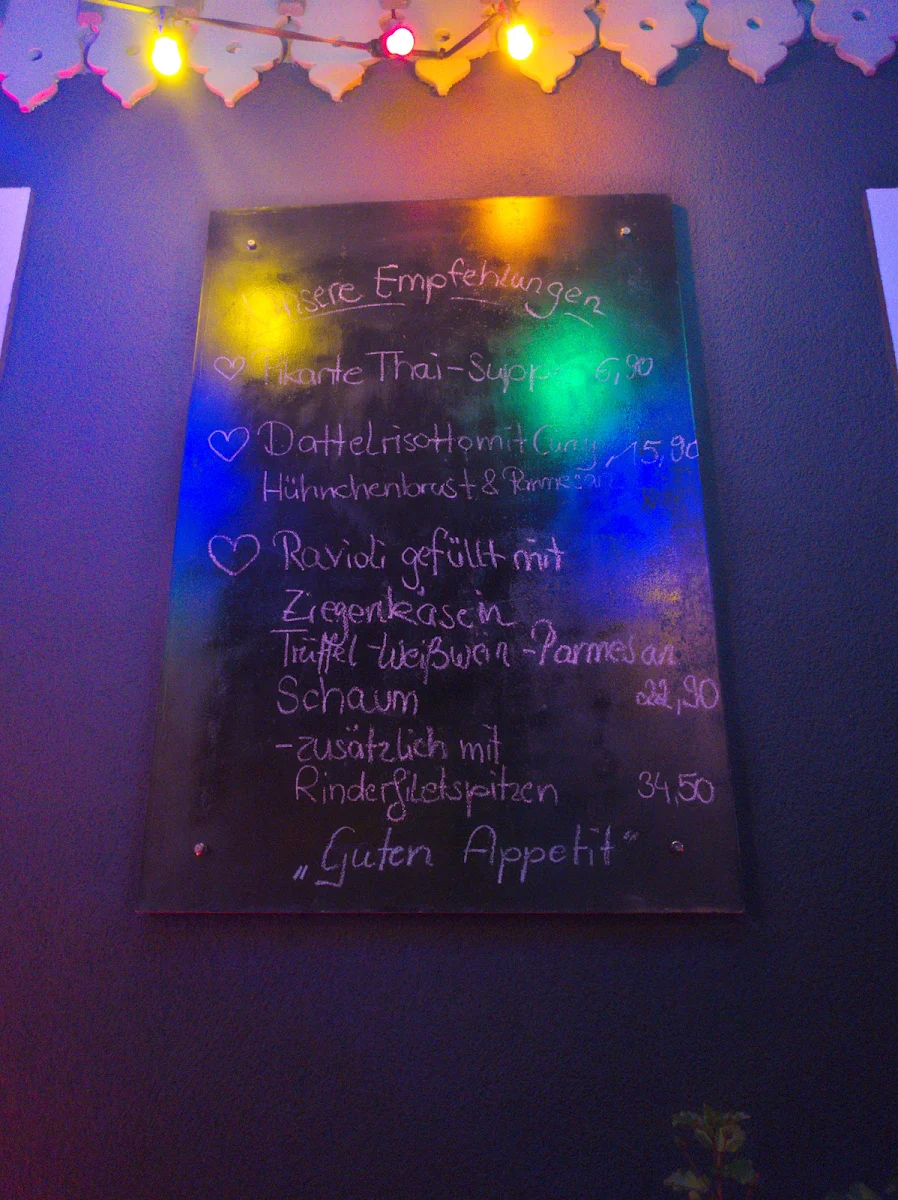 Unsere Empfehlungen
Pikante Thai-Suppe 6,90
Dattelrisotto mit Curry 15,90
Hühnchenbrust & Parmesan
Ravioli gefüllt mit
Ziegenkäse in
Trüffel-Weißwein-Parmesan
Schaum 22,90
-zusätzlich mit
Rinderfiletspitzen 34,50
„Guten Appetit“